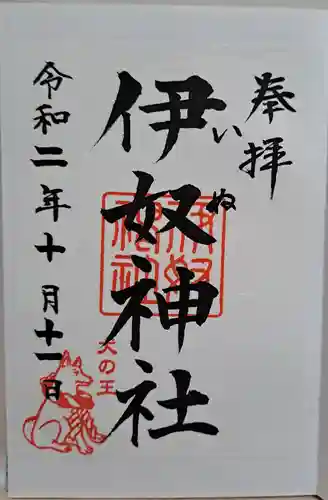 奉拝
伊奴神社
いぬ
犬の王
令和二年十月十一日